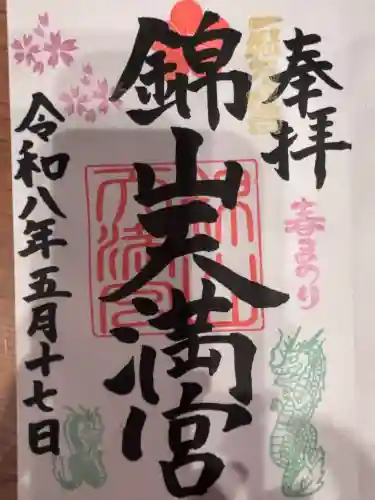 奉拝
春まつり
錦山天満宮
錦山天満宮
令和八年五月十七日